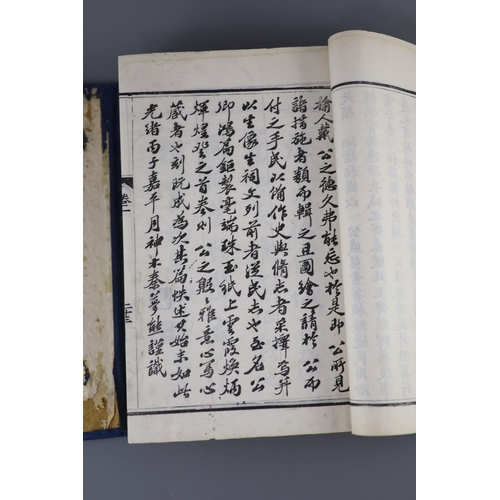 榆人戴 公之德久弗能忘也於是即 公所見
諸措施者類而輯之且圖繪之請於 公而
付之手民以備作史與脩志者采擇焉并
以生像生祠文列前者從民志也至名公
卿鴻篇鉅製毫端珠玉紙上雲霞煥炳
輝煌登之首卷則 公之殷〻雅意心寫心
藏者也刻既成為次其篇帙述其始末如此
光緒丙子嘉平月神木秦夢熊謹識
卷一